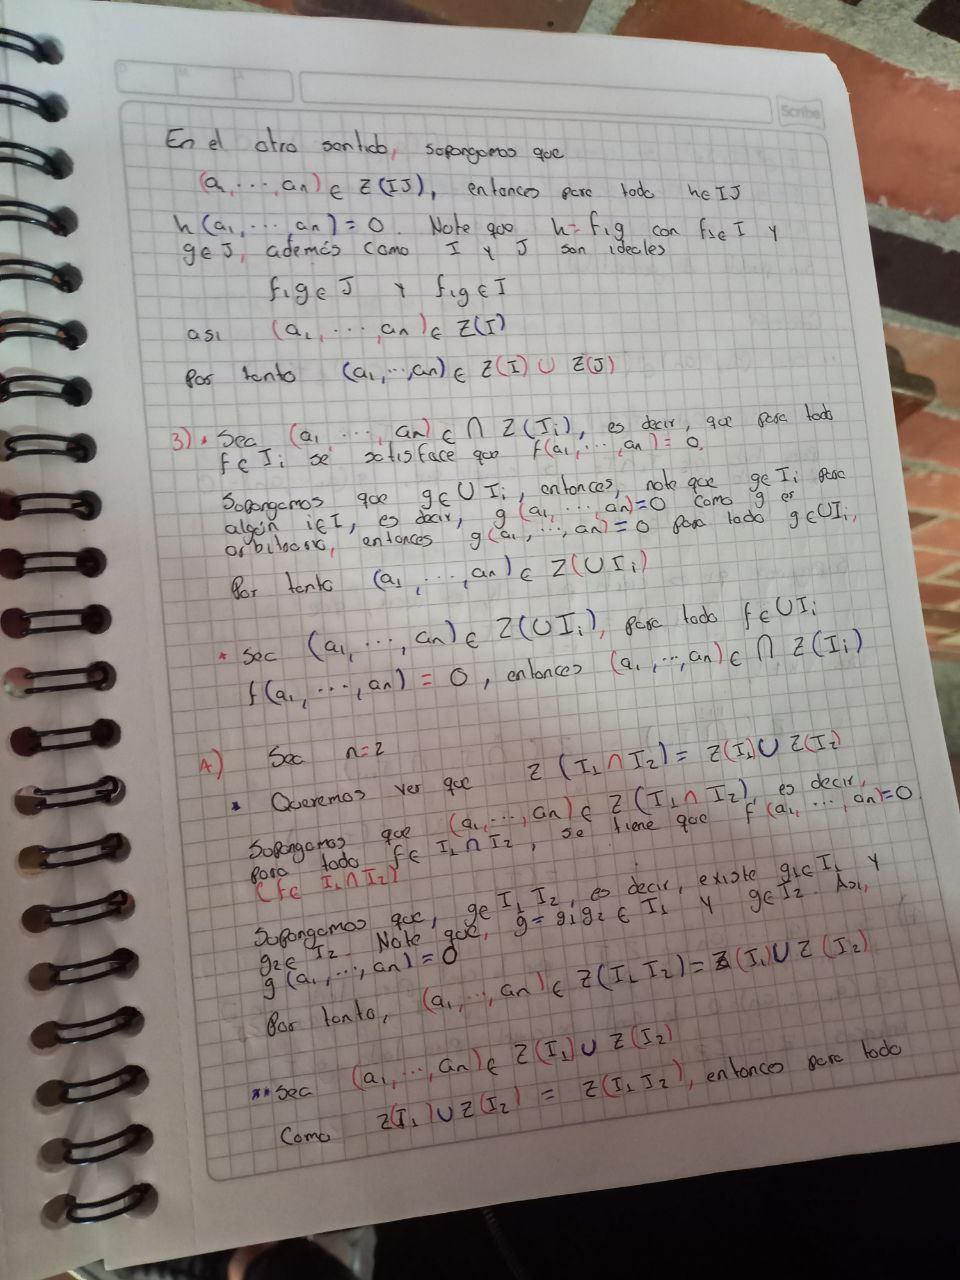 Scribe
En el otro sentido, supongamos que
(a₁, ⋯, an) ∈ Z(IJ), entonces para todo h∈IJ
h(a₁, ⋯, an) = 0. Note que h = f₁g con f₁∈I y
g∈J, además como I y J son ideales
f₁g ∈ J y f₁g ∈ I
así (a₁, ⋯, an) ∈ Z(I)
Por tanto (a₁, ⋯, an) ∈ Z(I) ∪ Z(J)
3) • Sea (a₁, ⋯, an) ∈ ∩ Z(Ii), es decir, que para todo
f∈Ii se satisface que f(a₁, ⋯, an) = 0.
Supongamos que g∈∪Ii, entonces, note que g∈Ii para
algún i∈I, es decir, g(a₁, ⋯, an)=0 como g es
arbitrario, entonces g(a₁, ⋯, an)=0 para todo g∈∪Ii,
Por tanto (a₁, ⋯, an) ∈ Z(∪Ii)
* Sea (a₁, ⋯, an) ∈ Z(∪Ii), para todo f∈∪Ii
f(a₁, ⋯, an) = 0, entonces (a₁, ⋯, an) ∈ ∩ Z(Ii)
4) Sea n=2
• Queremos ver que Z(I₁∩I₂) = Z(I₁)∪Z(I₂)
Supongamos que (a₁, ⋯, an) ∈ Z(I₁∩I₂), es decir,
para todo f∈ I₁∩I₂, se tiene que f(a₁, ⋯, an)=0
(f∈ I₁∩I₂)
Supongamos que, g∈ I₁I₂, es decir, existe g₁∈I₁ y
g₂∈ I₂. Note que, g= g₁g₂ ∈ I₁ y g∈I₂. Así,
g(a₁, ⋯, an) = 0
Por tanto, (a₁, ⋯, an) ∈ Z(I₁I₂) = Z(I₁)∪Z(I₂)
** Sea (a₁, ⋯, an) ∈ Z(I₁) ∪ Z(I₂)
Como Z(I₁)∪Z(I₂) = Z(I₁I₂), entonces para todo